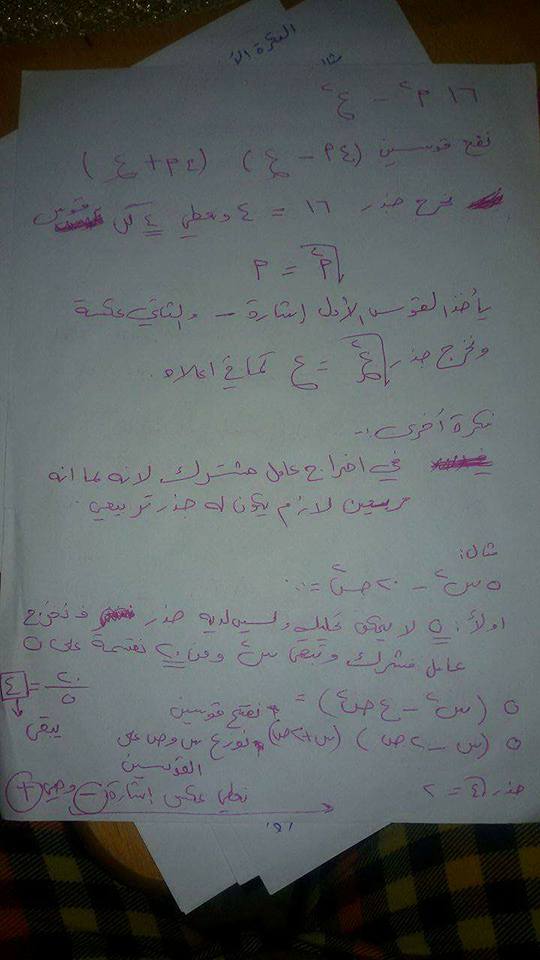 الفكرة الأ
مثال
١٦ م٢ - ع٢
نفتح قوسين (٤م - ع) (٤م + ع)
نخرج جذر ١٦ = ٤ ونعطي ٤ كل قوس
√م٢ = م
يأخذ القوس الأول إشارة - والثاني عكسة
ونخرج جذر √ع٢ = ع كما في اعلاه
فكرة أخرى :-
في اخراج عامل مشترك لانه بما انه
مربعين لازم يكون له جذر تربيعي
مثال:
٥س٢ - ٢٠ص٢ =
اولاً: ٥ لا يمكن تحليله وليس لديه جذر فنخرج
عامل مشترك وتبقى س٢ ومن ٢٠ نقسمة على ٥
٢٠/٥ = ٤
يبقى
٥ (س٢ - ٤ص٢) = نفتح قوسين
٥ (س - ٢ص) (س + ٢ص) نوزع س وص على
القوسين
جذر √٤ = ٢
نعطي عكس إشارة - وهي +